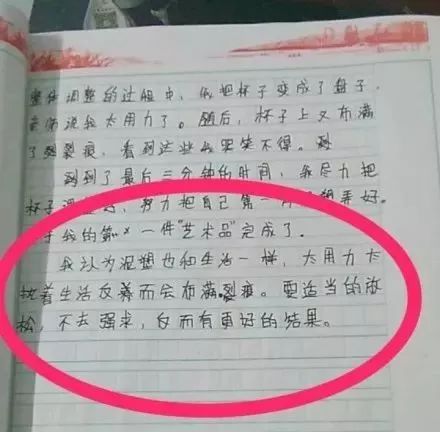 整体调整的过程中，我把杯子变成了盘子，
老师说我太用力了。随后，杯子上又布满
了裂痕，看到这些我哭笑不得。到
到到了最后三分钟的时间，我尽力把
杯子 好，努力把自己第一 弄好。
于我的第 一件"艺术品"完成了。
我认为泥塑也和生活一样，太用力
着生活反 而会布满裂痕。要适当的放
松，不去强求，反而有更好的结果。